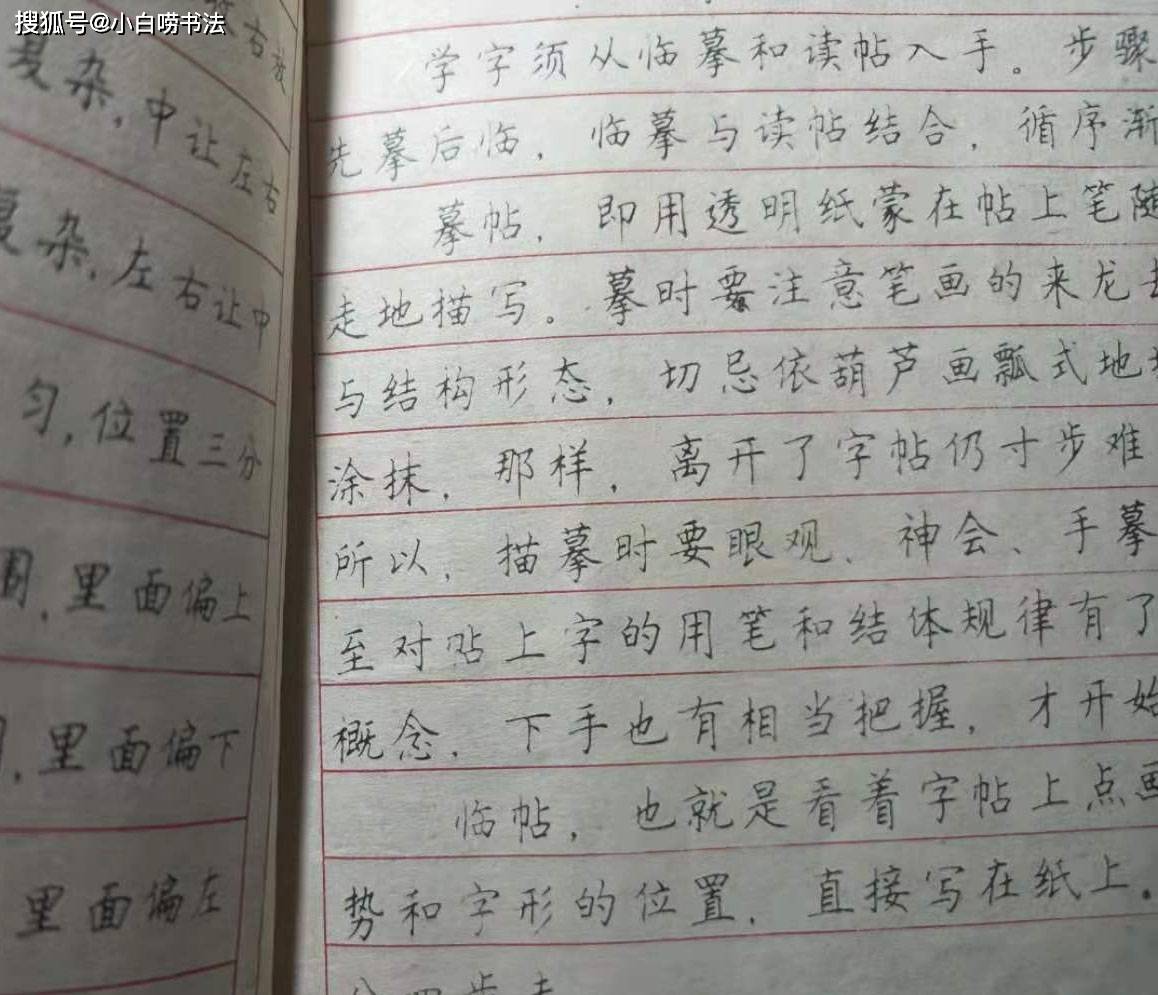 搜狐号@小白唠书法
右放
复杂,中让左右
复杂,左右让中
匀,位置三分
围,里面偏上
里面偏下
里面偏左
学字须从临摹和读帖入手。步骤
先摹后临,临摹与读帖结合,循序渐
摹帖,即用透明纸蒙在帖上笔随
走地描写。摹时要注意笔画的来龙去
与结构形态,切忌依葫芦画瓢式地
涂抹,那样,离开了字帖仍寸步难
所以,描摹时要眼观、神会、手摹
至对贴上字的用笔和结体规律有了
概念,下手也有相当把握,才开始
临帖,也就是看着字帖上点画
势和字形的位置,直接写在纸上。
分四步走